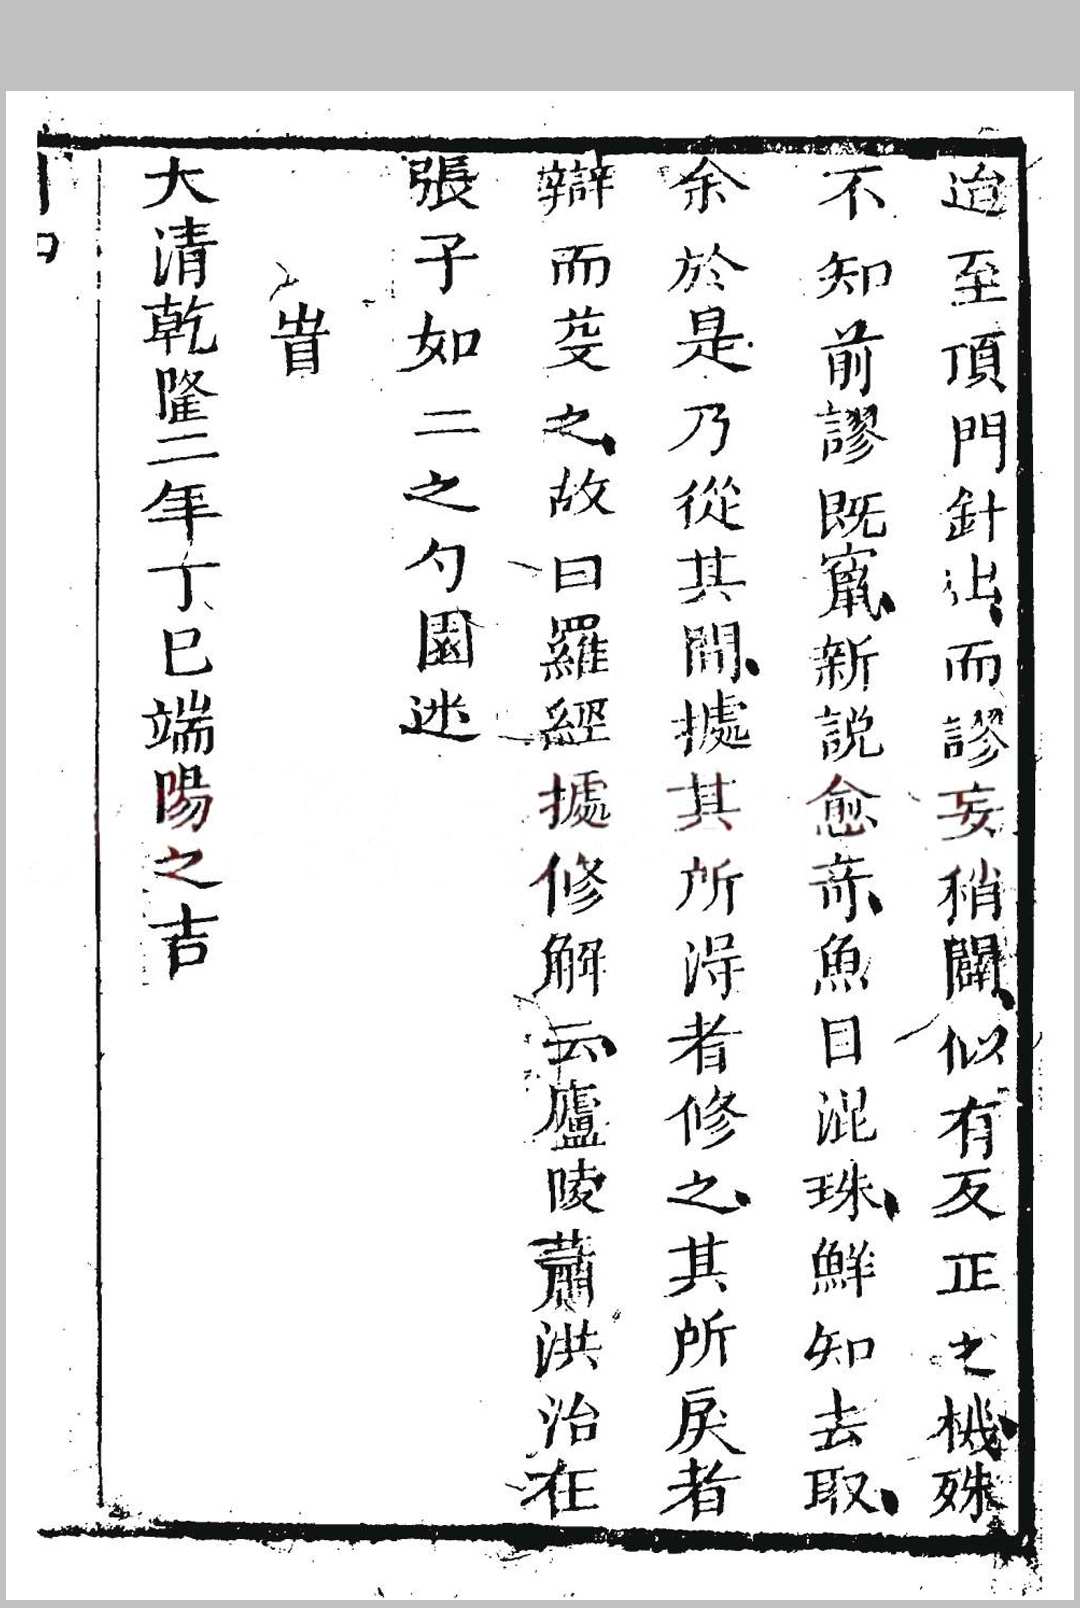 迨至頂門針出而謬妄稍闢似有反正之機殊
不知前謬既竄新說愈奇魚目混珠鮮知去取
余於是乃從其間據其所得者修之其所戾者
辯而芟之故曰羅經據修解云廬陵蕭洪治在
張子如二之勺園述
旹
大清乾隆二年丁巳端陽之吉